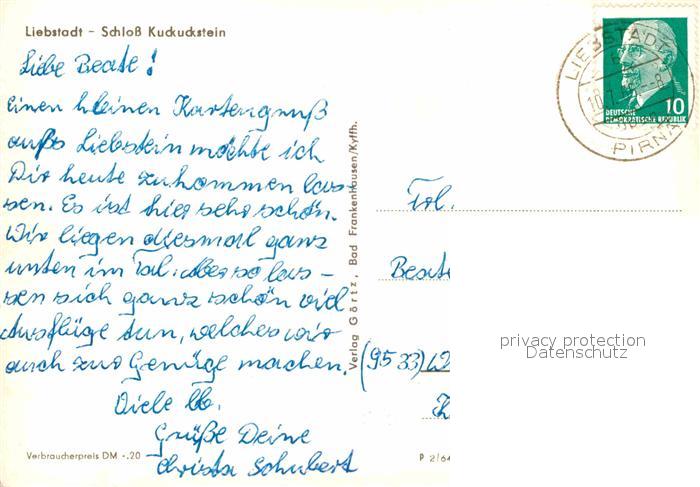 Liebstadt – Schloß Kuckuckstein
Liebe Beate!
Einen kleinen Kartengruß
aufs Liebstein möchte ich
Dir heute zukommen las-
sen. Es ist hier sehr schön.
Wir liegen diesmal ganz
unten im Tal. Aber so las-
sen sich ganz schön viel
Ausflüge tun, welches wir
auch zur Genüge machen.
Viele lb.
Grüße Deine
Christa Schubert
Verbraucherpreis DM -.20
Verlag Görtz, Bad Frankenhausen/Kyffh.
LIEBSTADT
PIRNA
10
DEUTSCHE
DEMOKRATISCHE REPUBLIK
Frl.
Beate
(9533)
privacy protection
Datenschutz
P 2/64